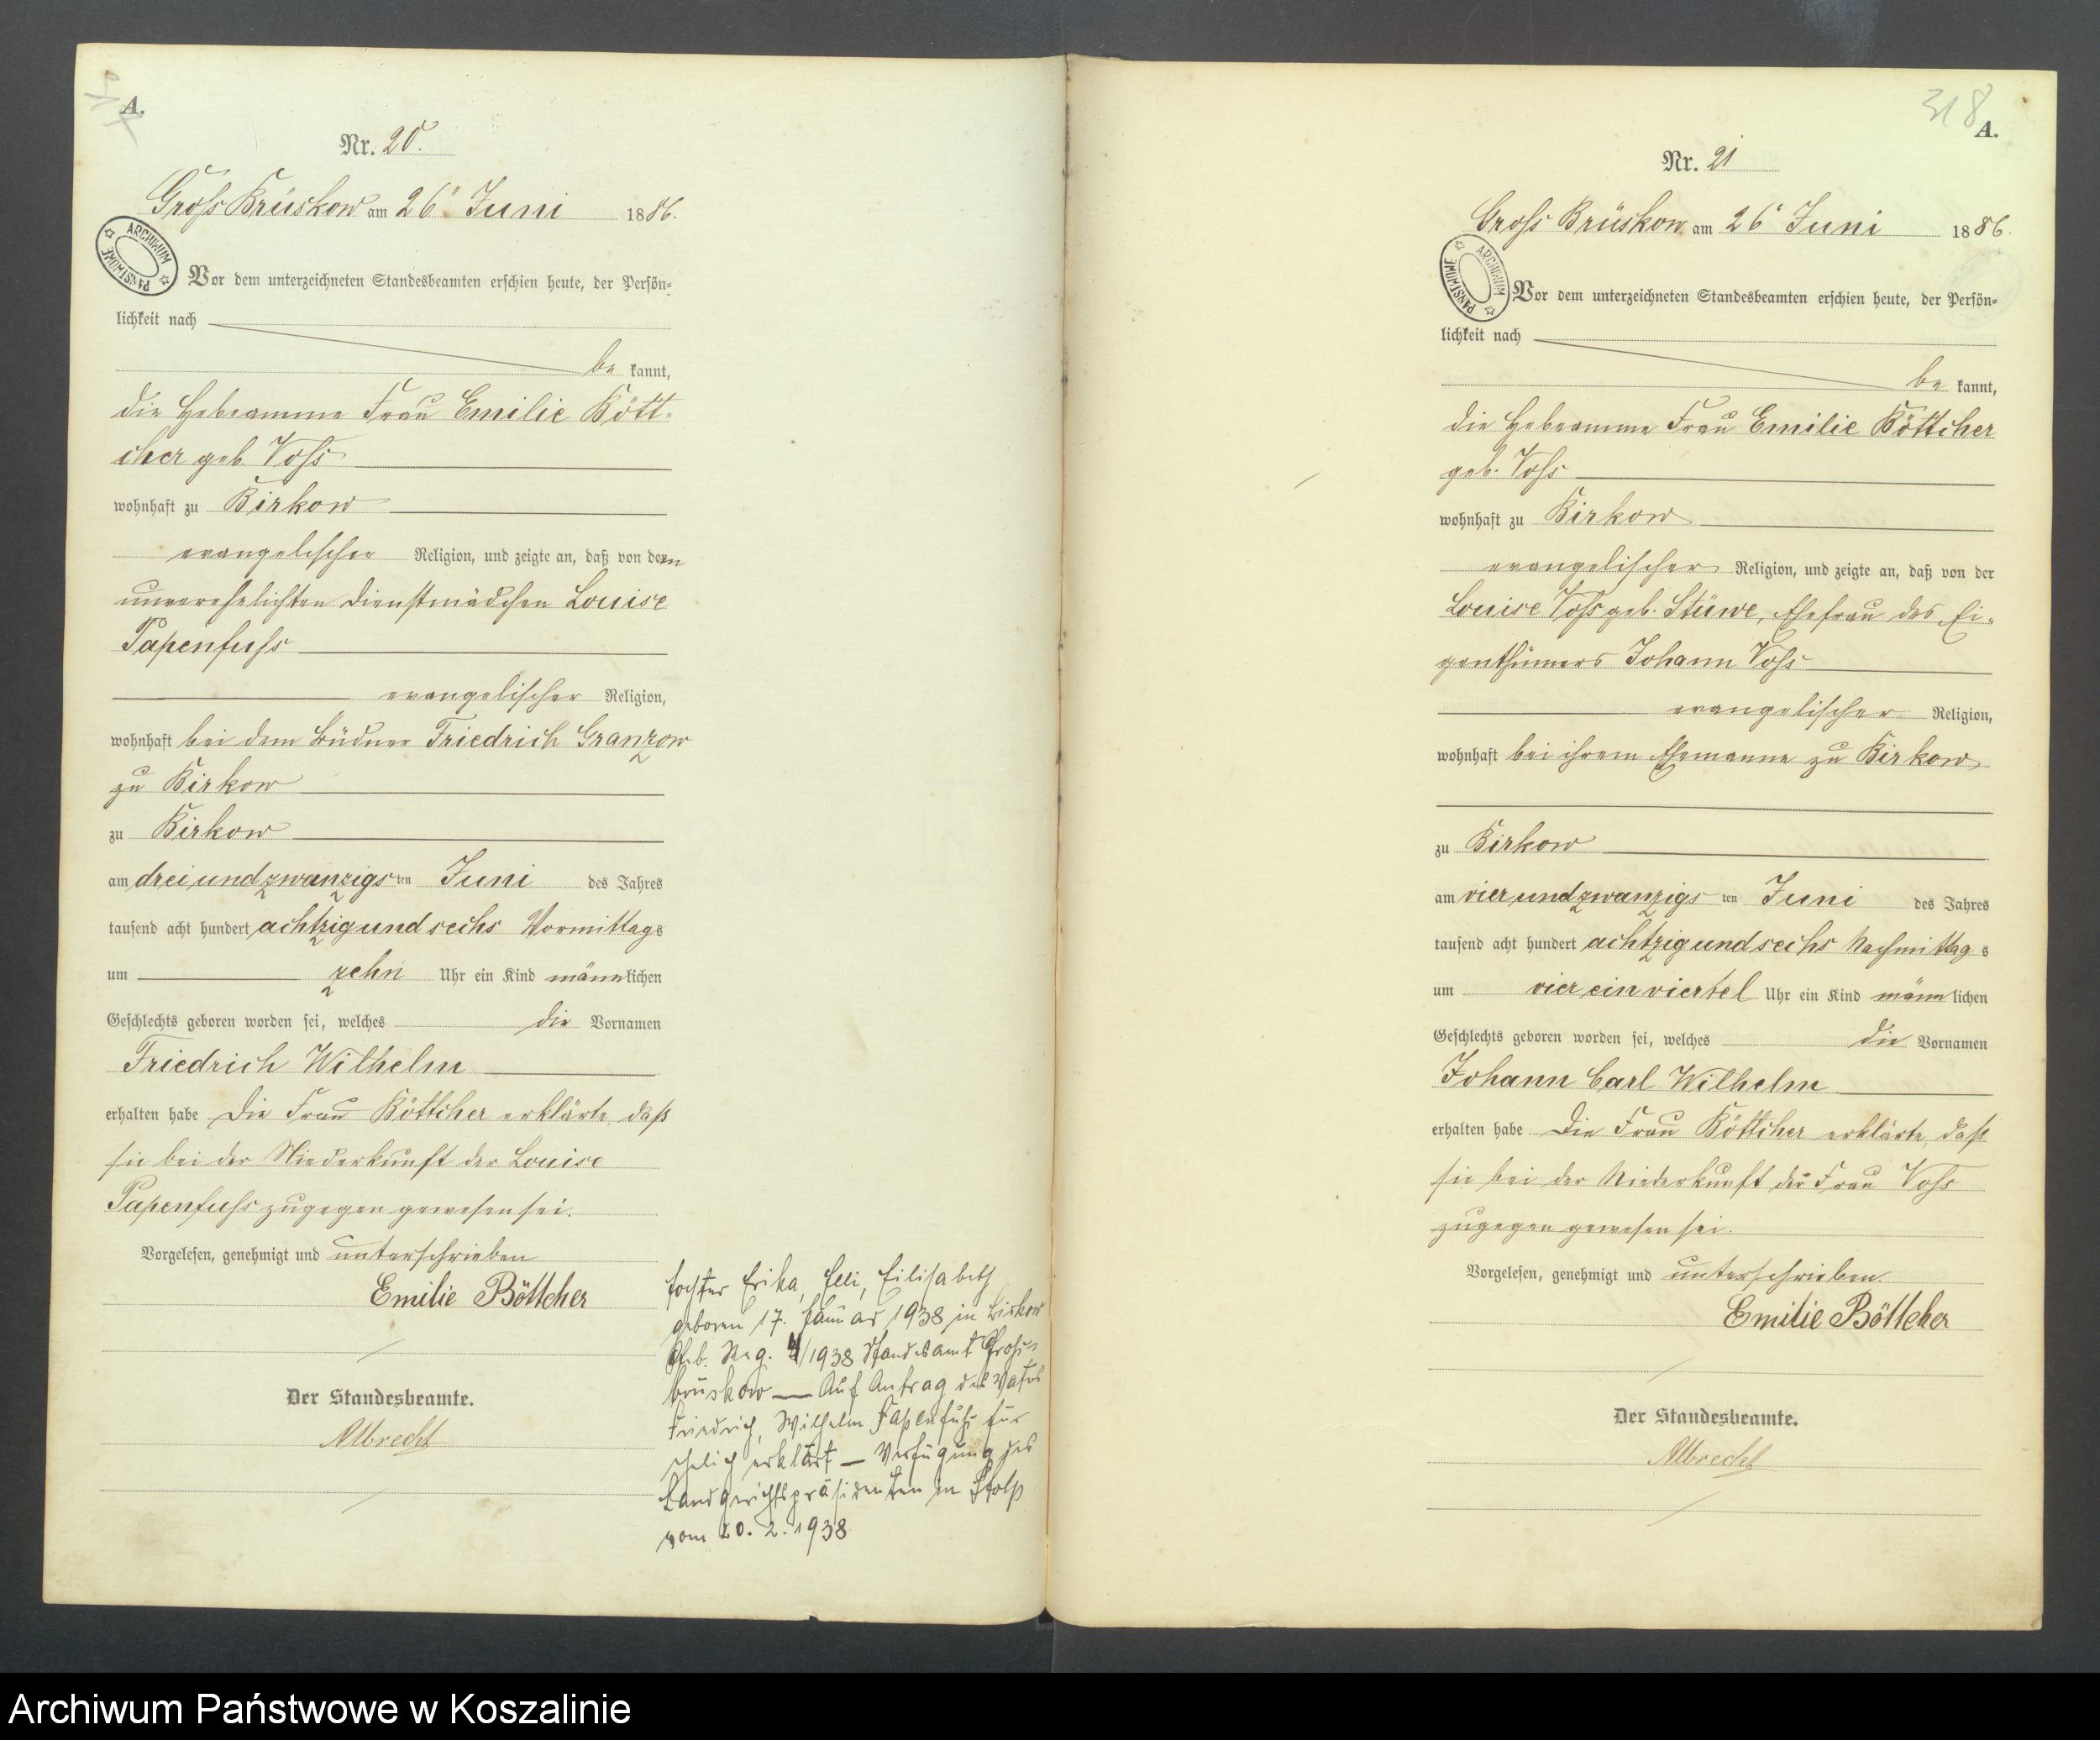 A.
Nr. 20.
Gross Brüskow am 26ten Juni 1886.
ARCHIWUM PAŃSTWOWE
Vor dem unterzeichneten Standesbeamten erschien heute, der Persön=
lichkeit nach
be kannt,
die Hebeamme Frau Emilie Bött-
cher geb. Voss
wohnhaft zu Birkow
evangelischer Religion, und zeigte an, daß von dem
unverehelichten Dienstmädchen Louise
Papenfuss
evangelischer Religion,
wohnhaft bei dem Büdner Friedrich Granzow
zu Birkow
zu Birkow
am dreiundzwanzigsten Juni des Jahres
tausend acht hundert achtzigundsechs Vormittags
um zehn Uhr ein Kind männlichen
Geschlechts geboren worden sei, welches die Vornamen
Friedrich Wilhelm
erhalten habe Die Frau Böttcher erklärte, daß
sie bei der Niederkunft der Louise
Papenfuss zugegen gewesen sei.
Vorgelesen, genehmigt und unterschrieben
Emilie Böttcher
Der Standesbeamte.
Albrecht
Tochter Erika, Elli, Elisabeth
geboren 17. Januar 1938 in Birkow
Geb. Reg. 4/1938 Standesamt Groß-
brüskow — Auf Antrag des Vaters
Friedrich, Wilhelm Papenfuß für
ehelich erklärt — Verfügung des
Landgerichtspräsidenten in Stolp
vom 20. 2. 1938
318
A.
Nr. 21
Gross Brüskow am 26ten Juni 1886.
ARCHIWUM PAŃSTWOWE
Vor dem unterzeichneten Standesbeamten erschien heute, der Persön=
lichkeit nach
be kannt,
die Hebeamme Frau Emilie Böttcher
geb. Voss
wohnhaft zu Birkow
evangelischer Religion, und zeigte an, daß von der
Louise Voss geb. Stüwe, Ehefrau des Ei-
genthümers Johann Voss
evangelischer Religion,
wohnhaft bei ihrem Ehemanne zu Birkow
zu Birkow
am vierundzwanzigsten Juni des Jahres
tausend acht hundert achtzigundsechs Nachmittags
um vier ein viertel Uhr ein Kind männlichen
Geschlechts geboren worden sei, welches die Vornamen
Johann Carl Wilhelm
erhalten habe Die Frau Böttcher erklärte, daß
sie bei der Niederkunft der Frau Voss
zugegen gewesen sei.
Vorgelesen, genehmigt und unterschrieben.
Emilie Böttcher
Der Standesbeamte.
Albrecht
Archiwum Państwowe w Koszalinie